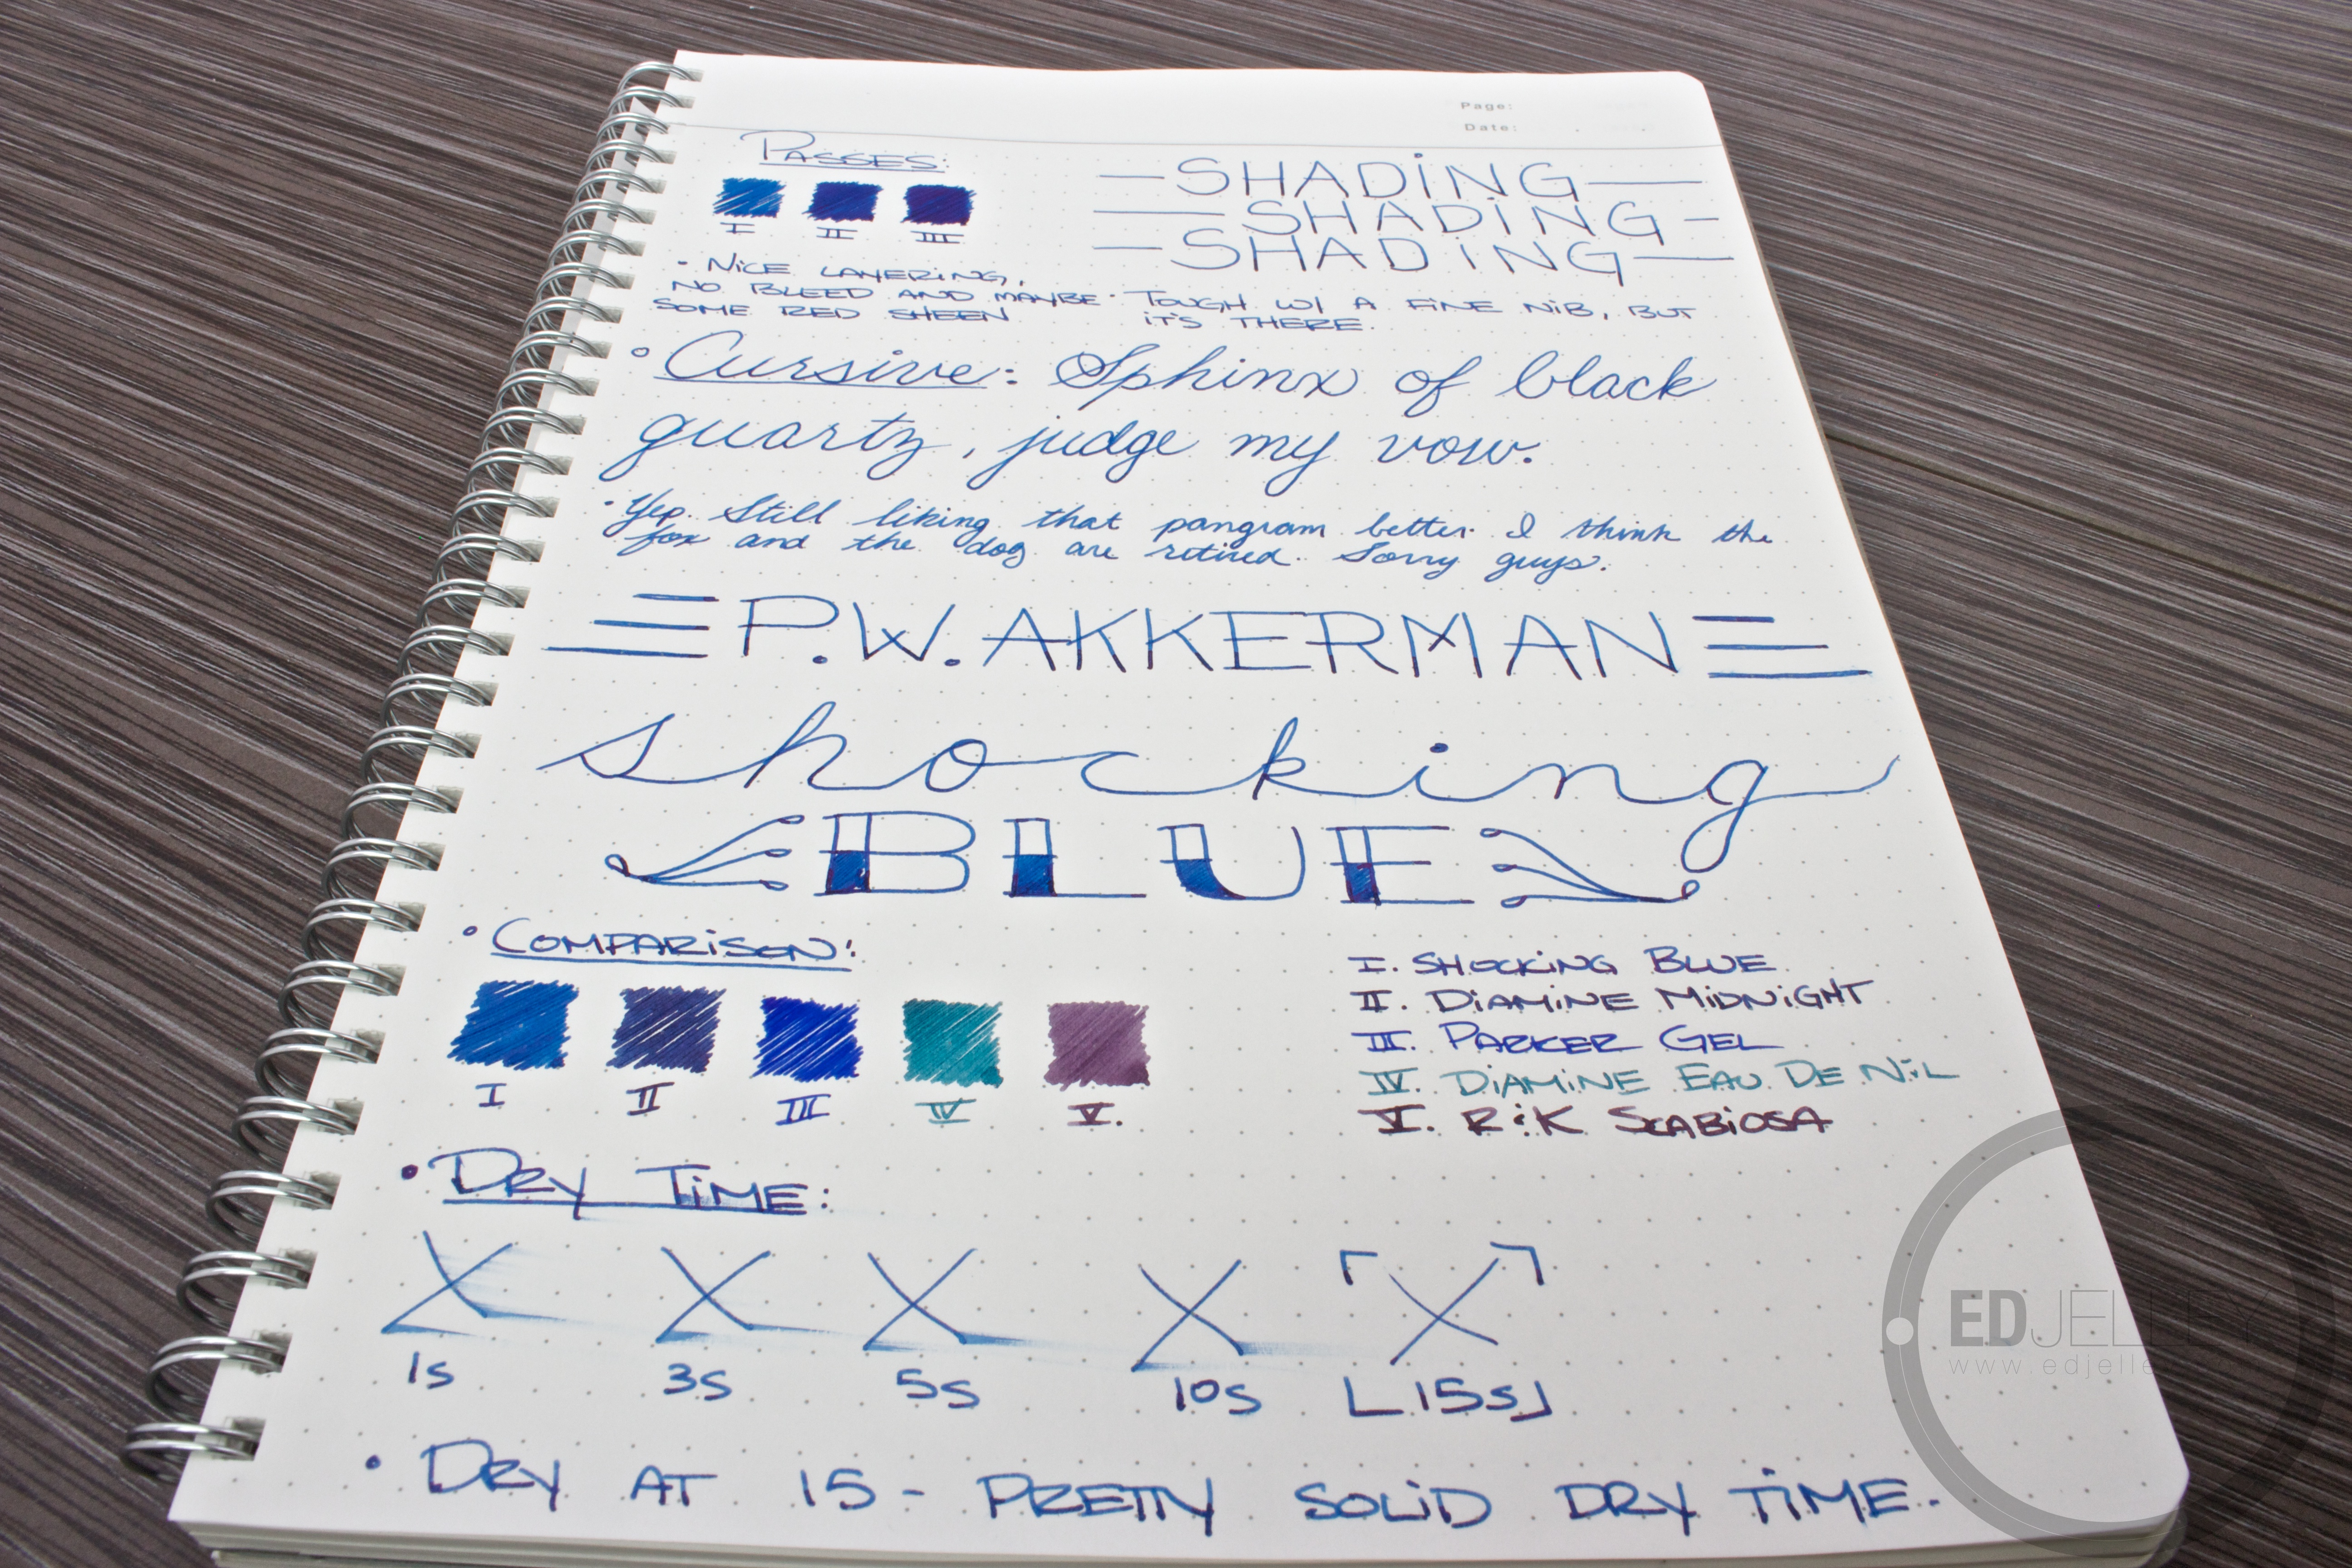 Page:
Date:
PASSES:
I II III
• NICE LAYERING,
NO BLEED AND MAYBE
SOME RED SHEEN
SHADING
SHADING
SHADING
• TOUGH W/ A FINE NIB, BUT
IT'S THERE.
• Cursive: Sphinx of black
quartz, judge my vow.
• Yep. Still liking that pangram better. I think the
fox and the dog are retired. Sorry guys.
P.W. AKKERMAN
shocking
BLUE
• COMPARISON:
I II III IV V.
I. SHOCKING BLUE
II. DIAMINE MIDNIGHT
III. PARKER GEL
IV. DIAMINE EAU DE NIL
V. R&K SCABIOSA
• DRY TIME:
X X X X X
1s 3s 5s 10s 15s
• DRY AT 15 - PRETTY SOLID DRY TIME.
EDJELLEY